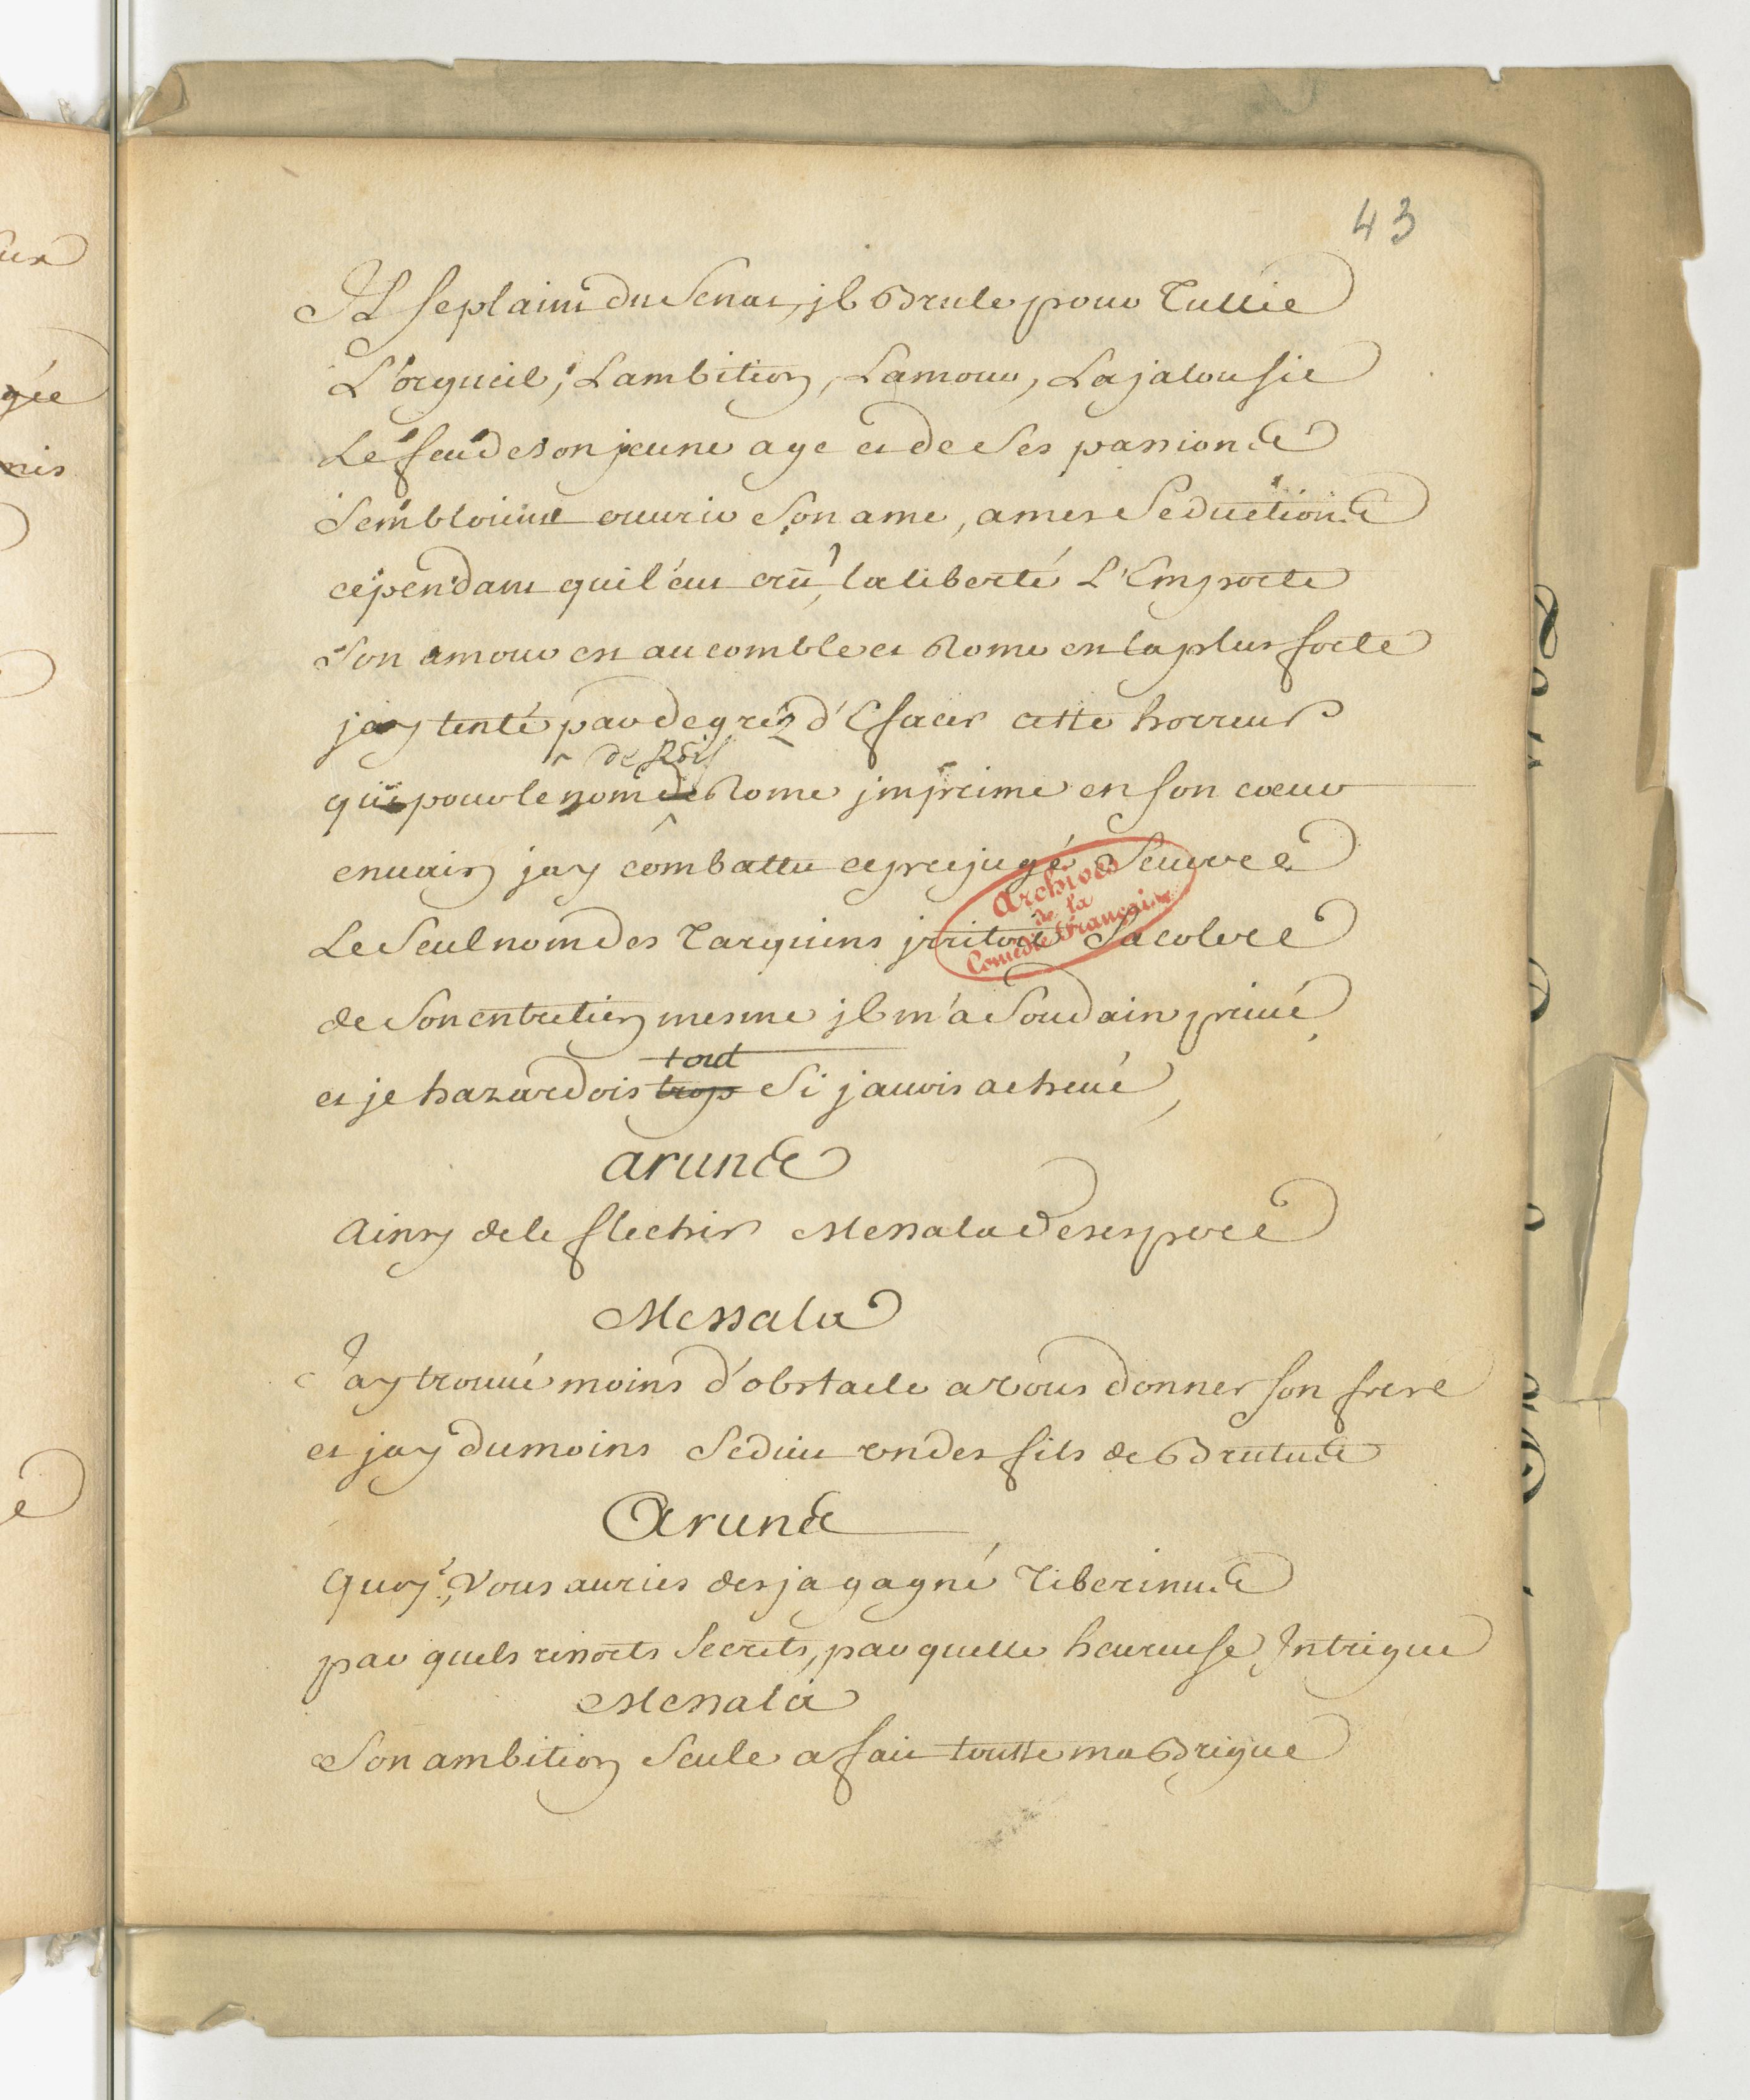 43
Il se plaint du Senat, jl Brule pour Tullie
L'orgueil, Lambition, Lamour, La jalousie
Le feu de son jeune age et de ses passions
Sembloient ouurir Son ame, a mes Seductions
cependant qui l'eut crû, la liberté L'Emporte
Son amour est au comble et Rome est la plus forte
jay tenté par degréz d'Efacer cette horreur
de Rois
qui pour le nom de Rome jmprime en son cœur
enuain jay combattu ce prejugé Seuere
Le Seul nom des Tarquins jrritoit Sa colere
de Son entretien mesme jl m'a Soudain priué
tout
et je hazardois trop Si j'auois acheué,
aruns
Ainsy de le flechir Messala desespere
Messala
J'ay trouué moins d'obstacle a vous donner son frere
et jay du moins Seduit un des fils de Brutus
Aruns
Quoy, Vous auries desja gagné Tiberinus
par quels ressorts Secrets, par quelle heureuse Intrigue
Messala
Son ambition Seule a fait toutte ma Brigue
Archives
de la
Comédie Française